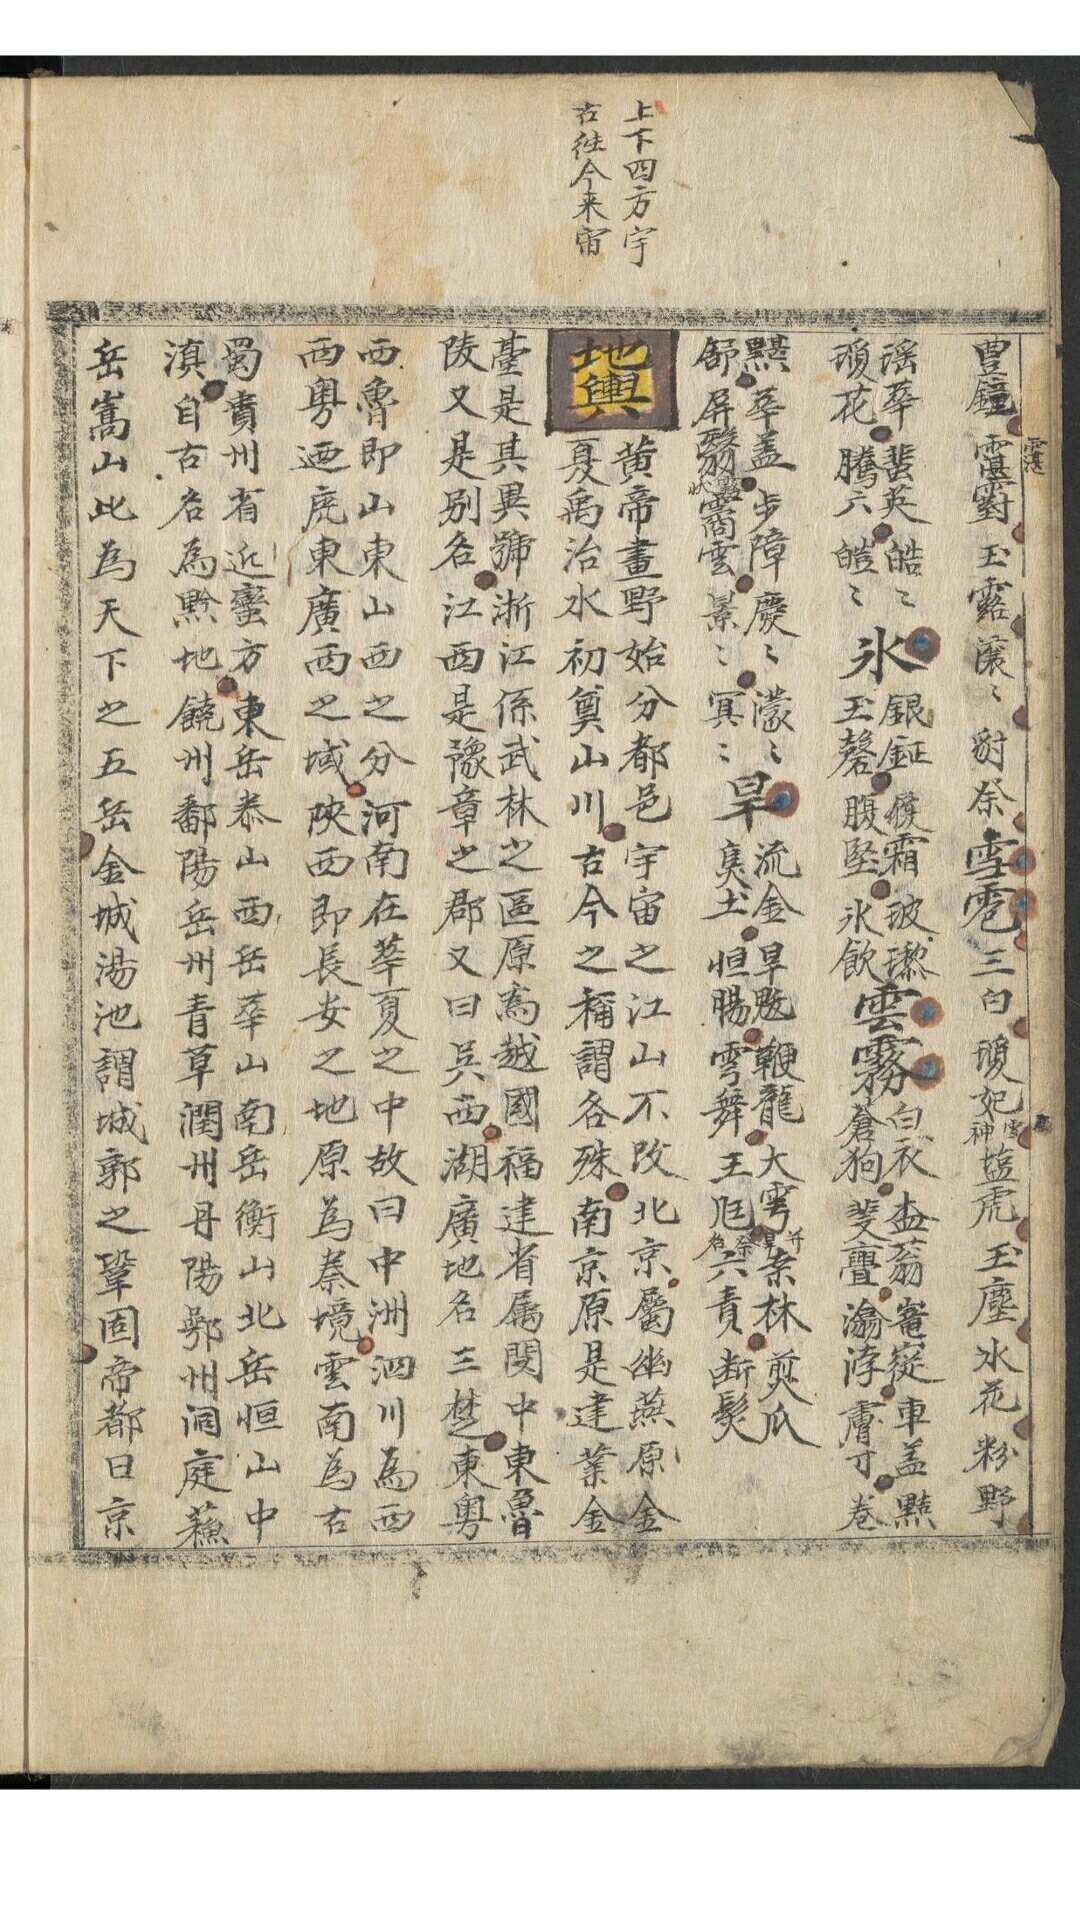 上下四方宇
古徃今来宙
豊鐘 玉露瀼〻 豺祭 雪雹 三白 瓊妃 雪神 塩虎 玉塵 水花 粉野
瑶華 蜚英 皓〻
瓊花 騰六 皚〻
氷
銀鉦 履霜 玻瓈
玉磬 腹坚 氷飲
雲霧
白衣 盎蓊 菴蓯 車盖 黕
蒼狗 斐亹 瀹浡 膚寸 卷
黮 華盖 步障 慶〻 濛〻
舒 屏翳 霱雲 景〻 冥〻
旱
流金 旱魃 鞭龍 大雩 祈旱 桑林 煎爪
焦土 恒暘 雩舞 王尫 祭名 六責 断髮
地輿
黄帝畫野始分都邑宇宙之江山不改北京屬幽燕原金
夏禹治水初奠山川古今之稱謂各殊南京原是建業金
臺是其異號浙江係武林之區原為越國福建省属閩中東魯
陵又是别名江西是豫章之郡又曰吳西湖廣地名三楚東粤
西魯即山東山西之分河南在華夏之中故曰中洲泗川為西
西粤迊虎東廣西之域陝西即長安之地原為秦境雲南為古
蜀貴州省近蠻方東岳泰山西岳華山南岳衡山北岳恒山中
滇自古名為黔地饒州鄱陽岳州青草潤州丹陽鄂州洞庭蘓
岳嵩山此為天下之五岳金城湯池謂城郭之鞏固帝都曰京